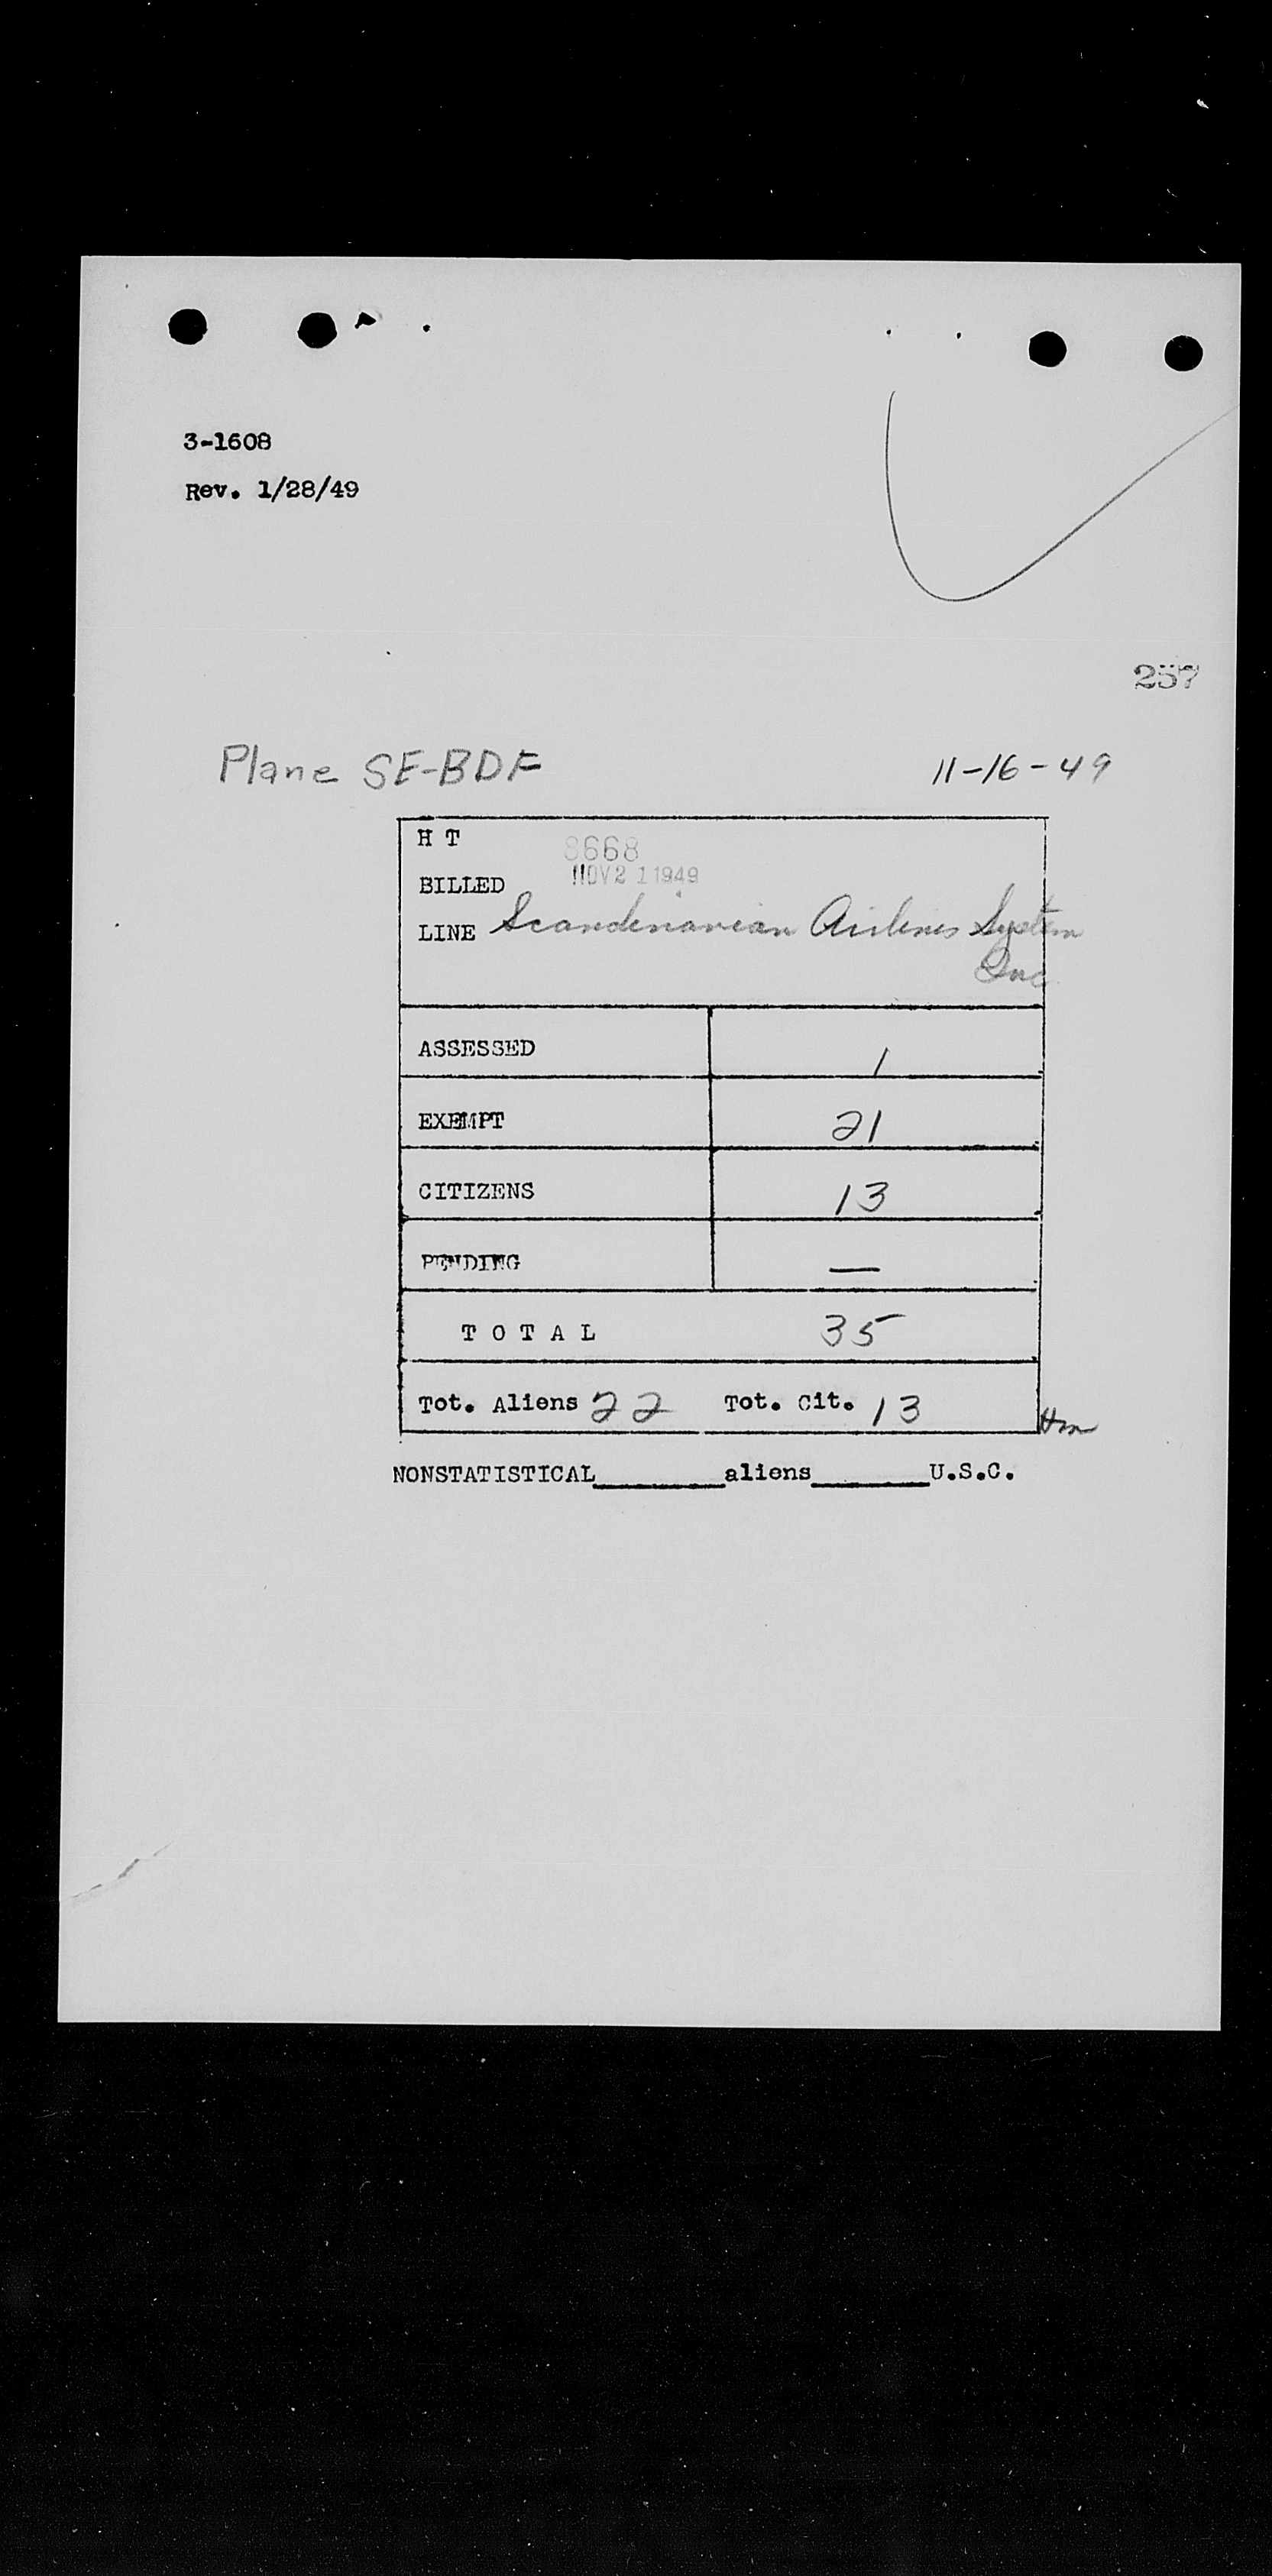 3-1608
Rev. 1/28/49
257
Plane SE-BDF 11-16-49
H T 8668
BILLED NOV 21 1949
LINE Scandinavian Airlines System
Inc
ASSESSED 1
EXEMPT 21
CITIZENS 13
PENDING —
T O T A L 35
Tot. Aliens 22 Tot. Cit. 13 Hm
NONSTATISTICAL________aliens________U.S.C.